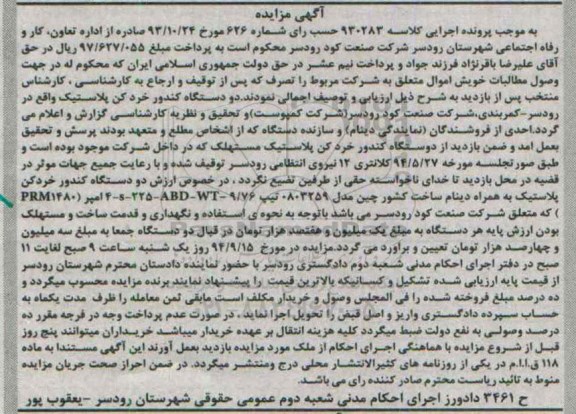 آگهی مزایده
به موجب پرونده اجرایی کلاسه ۹۳۰۲۸۳ حسب رای شماره ۶۲۶ مورخ ۹۳/۱۰/۲۴ صادره از اداره تعاون، کار و
رفاه اجتماعی شهرستان رودسر شرکت صنعت کود رودسر محکوم است به پرداخت مبلغ ۹۷/۶۲۷/۰۵۵ ریال در حق
آقای علیرضا باقرنژاد فرزند جواد و پرداخت نیم عشر در حق دولت جمهوری اسلامی ایران که محکوم له در جهت
وصول مطالبات خویش اموال متعلق به شرکت مربوط را تصرف که پس از توقیف و ارجاع به کارشناسی ، کارشناس
منتخب پس از بازدید به شرح ذیل ارزیابی و توصیف اجمالی نمودند.دو دستگاه کندور خرد کن پلاستیک واقع در
رودسر-کمربندی،شرکت صنعت کود رودسر(شرکت کمپوست)و تحقیق و نظریه کارشناسی گزارش و اعلام می
گردد.احدی از فروشندگان (نمایندگی دینام) و سازنده دستگاه که از اشخاص مطلع و متعهد بودند پرسش و تحقیق
بعمل امد و ضمن بازدید از دوستگاه کندور خرد کن پلاستیک مستهلک که در داخل شرکت موجود بوده است و
طبق صورتجلسه مورخه ۹۴/۵/۲۷ کلانتری ۱۲ نیروی انتظامی رودسر توقیف شده و با رعایت جمیع جهات موثر در
قضیه در محل بازدید تا خدای ناخواسته حقی از طرفین تضیع نگردد ، در خصوص ارزش دو دستگاه کندور خردکن
پلاستیک به همراه دینام ساخت کشور چین مدل ۸۰۳۲۵۹ تیپ ۴-s-۲۲۵-ABD-WT-۹/۷۶ امپر (PRM۱۴۸۰
) که متعلق شرکت صنعت کود رودسر می باشد باتوجه به نحوه ی استفاده و نگهداری و قدمت ساخت و مستهلک
بودن ارزش پایه هر دستگاه به مبلغ یک میلیون و هفتصد هزار تومان در قبال دو دستگاه جمعا به مبلغ سه میلیون
و چهارصد هزار تومان تعیین و برآورد می گردد.مزایده در مورخ ۹۴/۹/۱۵ روز یک شنبه ساعت ۹ صبح لغایت ۱۱
صبح در دفتر اجرای احکام مدنی شعبه دوم دادگستری رودسر با حضور نماینده دادستان محترم شهرستان رودسر
از قیمت پایه ارزیابی شده تشکیل و کسانیکه بالاترین قیمت را پیشنهاد نمایند برنده مزایده محسوب میگردد و
ده درصد مبلغ فروخته شده را فی المجلس وصول و خریدار مکلف است مابقی ثمن معامله را ظرف مدت یکماه به
حساب سپرده دادگستری واریز و اصل قبض را تحویل اجرا نماید ، در صورت عدم پرداخت وجه در فرجه مقرر ده
درصد وصولی به نفع دولت ضبط میگردد کلیه هزینه انتقال بر عهده خریدار میباشد خریداران میتوانند پنج روز
قبل از شروع مزایده با هماهنگی اجرای احکام از ملک مورد مزایده بازدید بعمل آورند این آگهی مستندا به ماده
۱۱۸ ق.ا.ا.م در یکی از روزنامه های کثیرالانتشار محلی درج ومنتشر میگردد. در ضمن احراز صحت جریان مزایده
منوط به تائید ریاست محترم صادر کننده رای می باشد.
ح ۳۴۶۱ دادورز اجرای احکام مدنی شعبه دوم عمومی حقوقی شهرستان رودسر -یعقوب پور